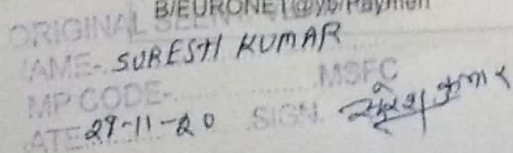 B/EURONET@ybl/Paymen
ORIGINAL SEE
NAME- SURESH KUMAR
MP CODE- MSFC
ATE 29-11-20 SIGN. सुरेश कुमार